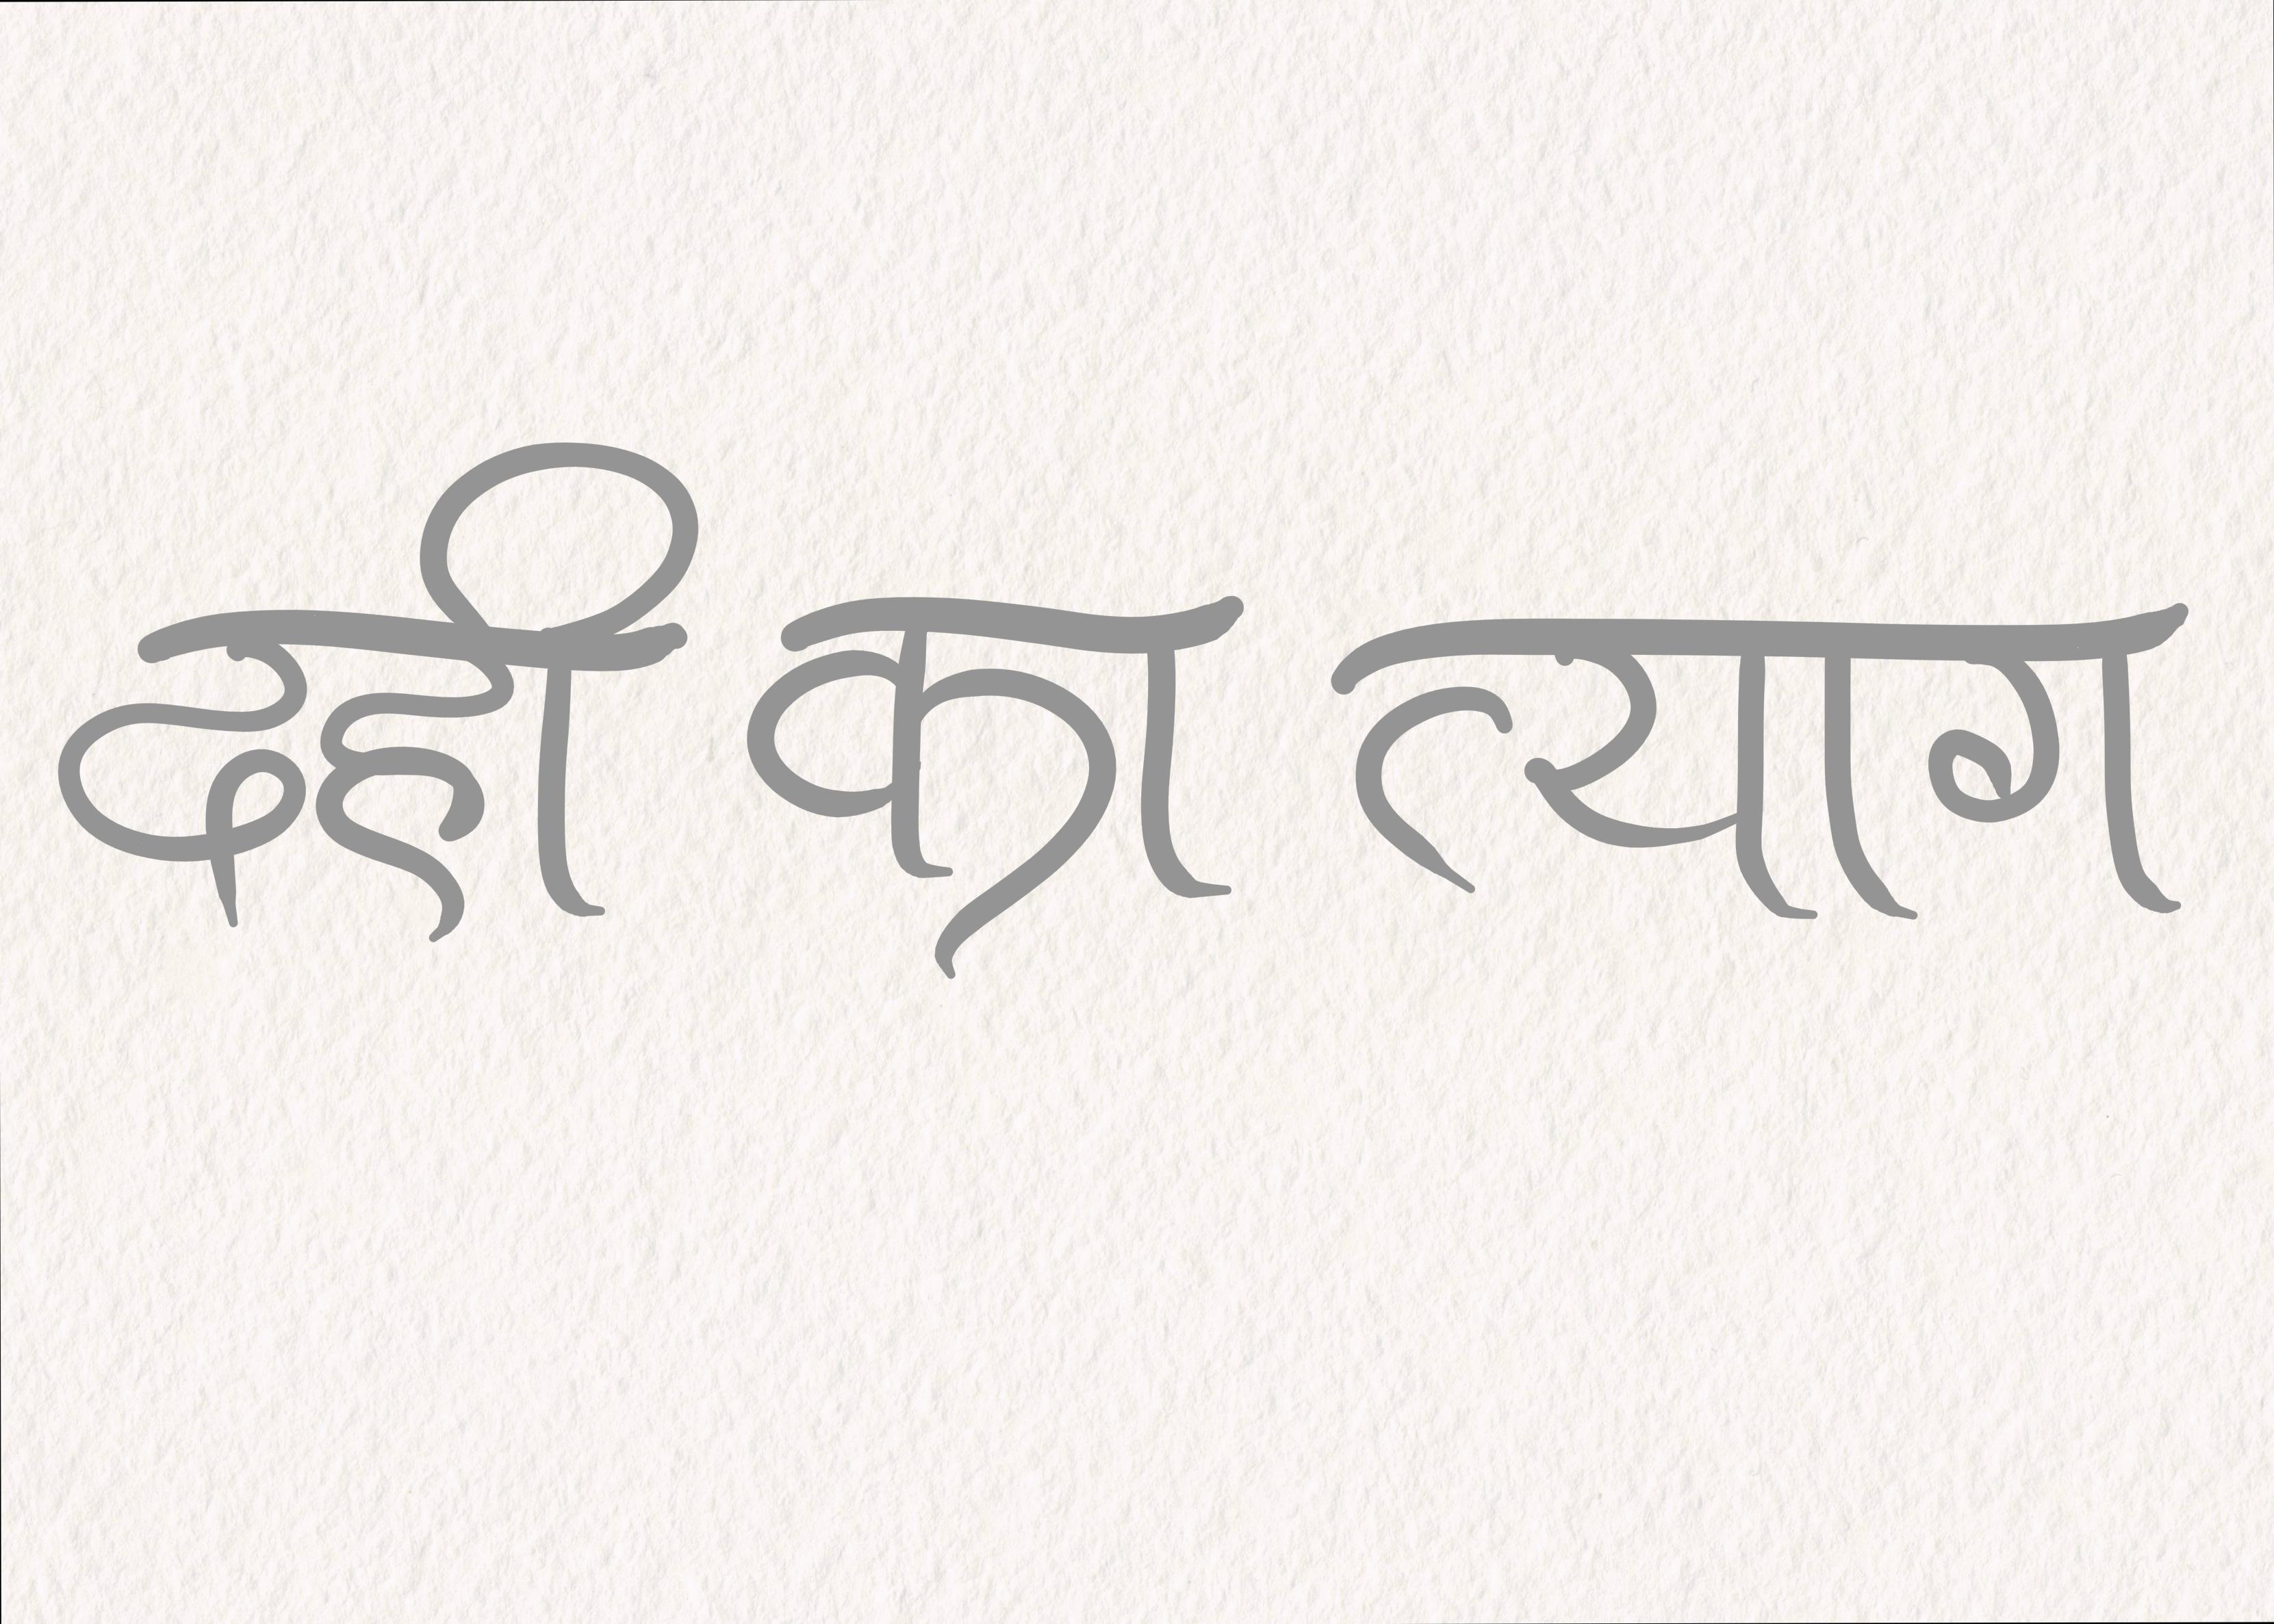 दही का त्याग